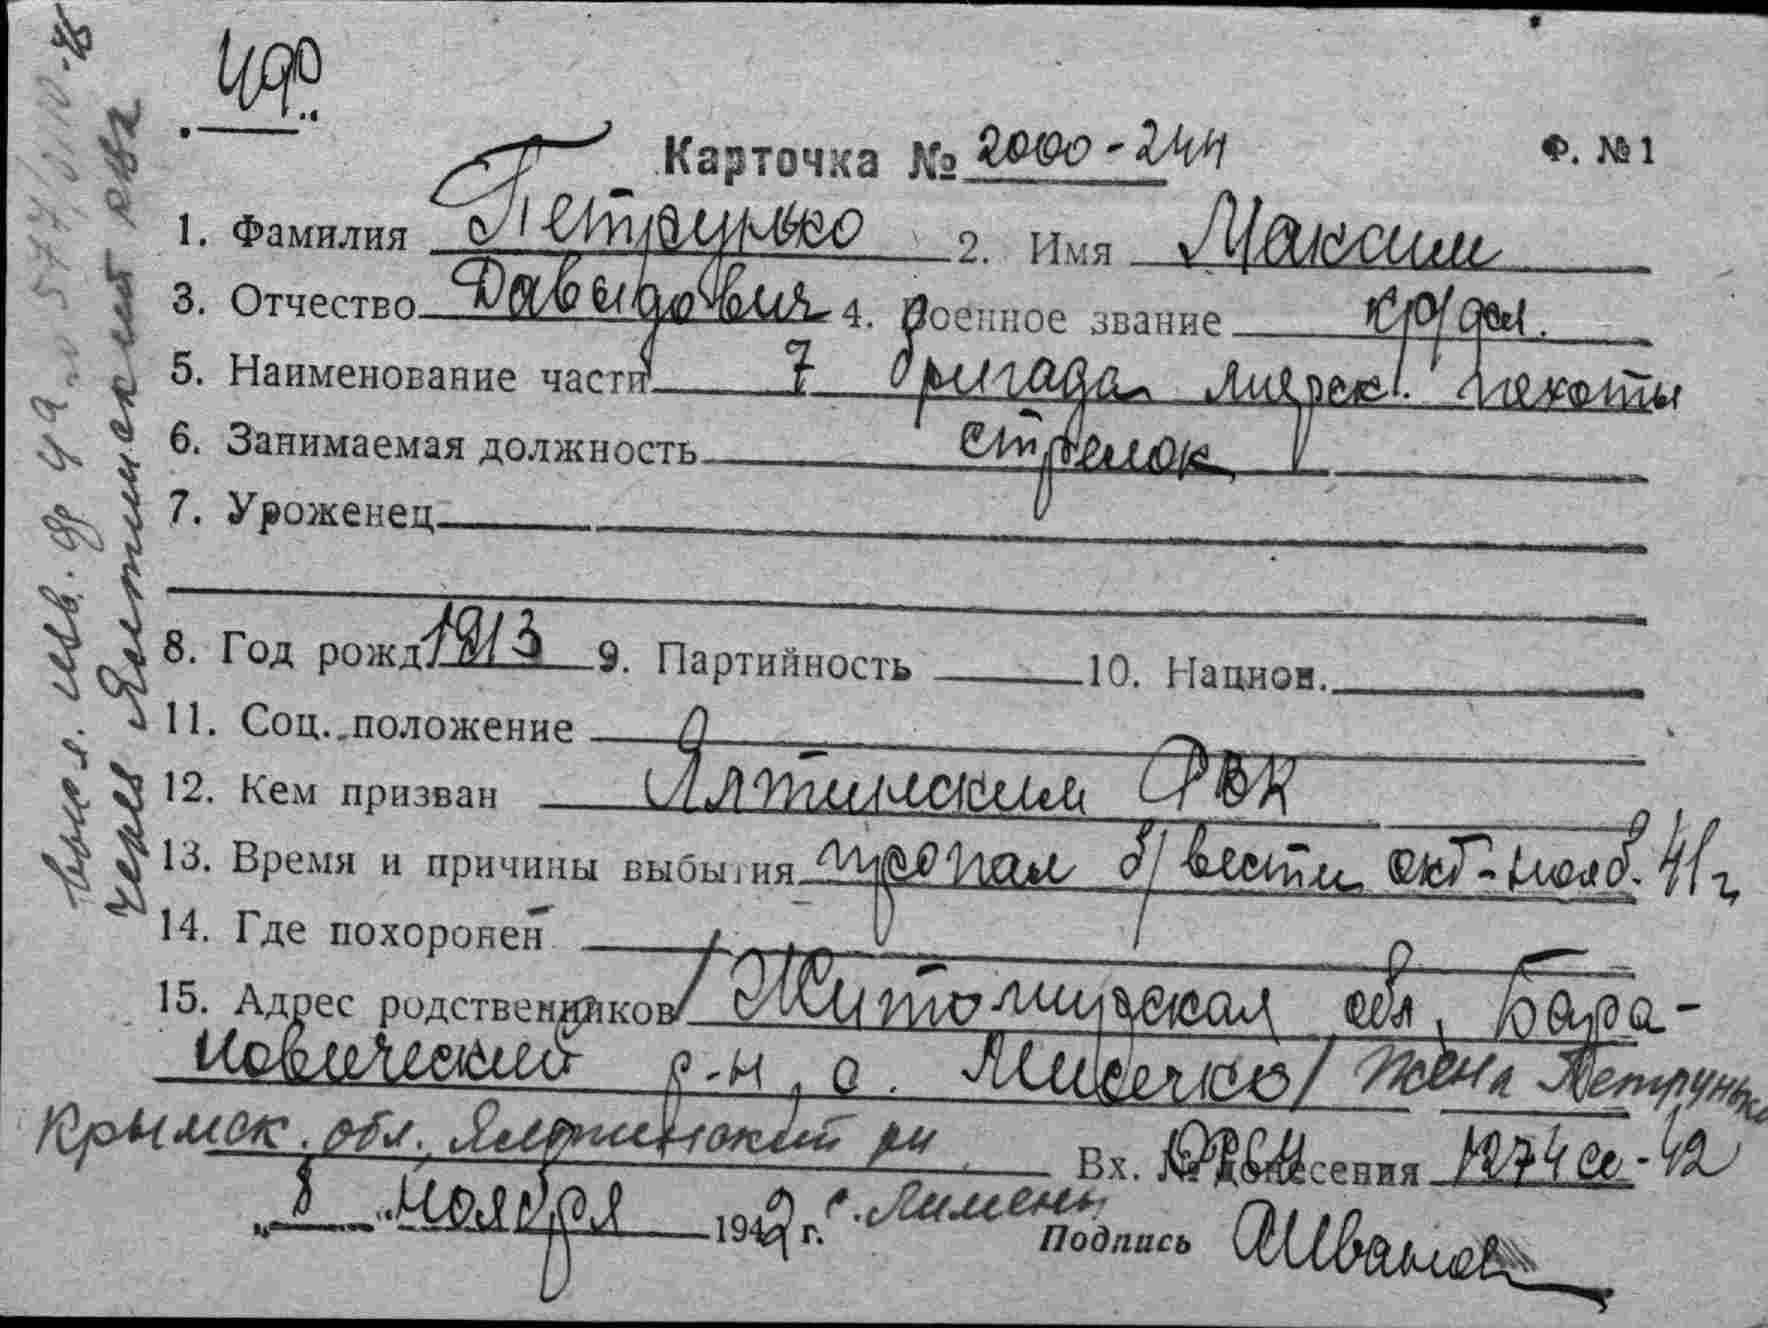 Карточка № 2000-244
Ф. №1
1. Фамилия Петрунько 2. Имя Максим
3. Отчество Давыдович 4. Военное звание кр/фл.
5. Наименование части 7 бригада морск. пехоты
6. Занимаемая должность стрелок
7. Уроженец
8. Год рожд 1913 9. Партийность 10. Национ.
11. Соц. положение
12. Кем призван Ялтинским РВК
13. Время и причины выбытия пропал б/вести окт-нояб. 41 г
14. Где похоронен
15. Адрес родственников / Житомирская обл, Бара-
новический р-н, с. / Жена Петрунько
Крымск. обл., Ялтинский рн
Вх. № донесения 1274 сс-42
с. Лимены
„8" ноября 1942 г.
Подпись Иванов
высл. изв.
через Ялтинский рвк